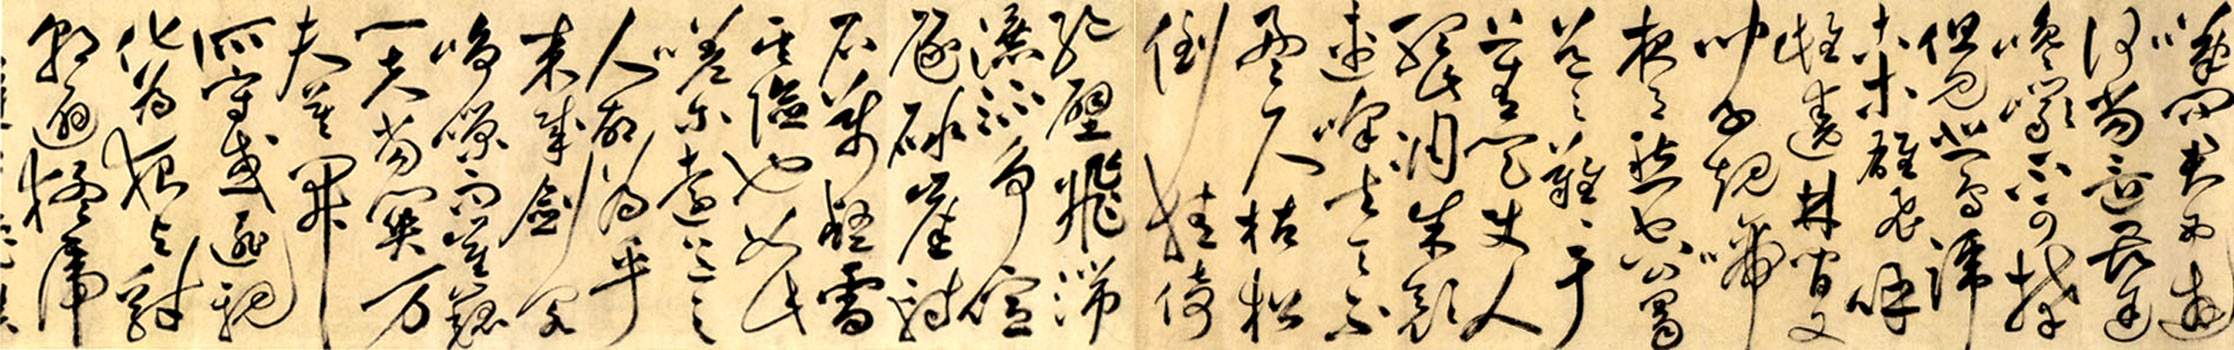 嘆問君西遊
何當還畏途
巉巖不可攀
但見悲鳥號
古木雄飛呼
雌遶林間又
聞子規啼
夜月愁空山蜀
道之難難于
上青天使人
聽此凋朱顏
連峰去天不
盈尺枯松
倒挂倚
絕壁飛湍
瀑流爭喧
豗砯崖轉
石萬壑雷
其險也如此
嗟尔遠道之
人胡為乎
來哉劍閣
崢嶸而崔嵬
一夫當關万
夫莫開
所守或匪親
化為狼與豺
朝避猛虎